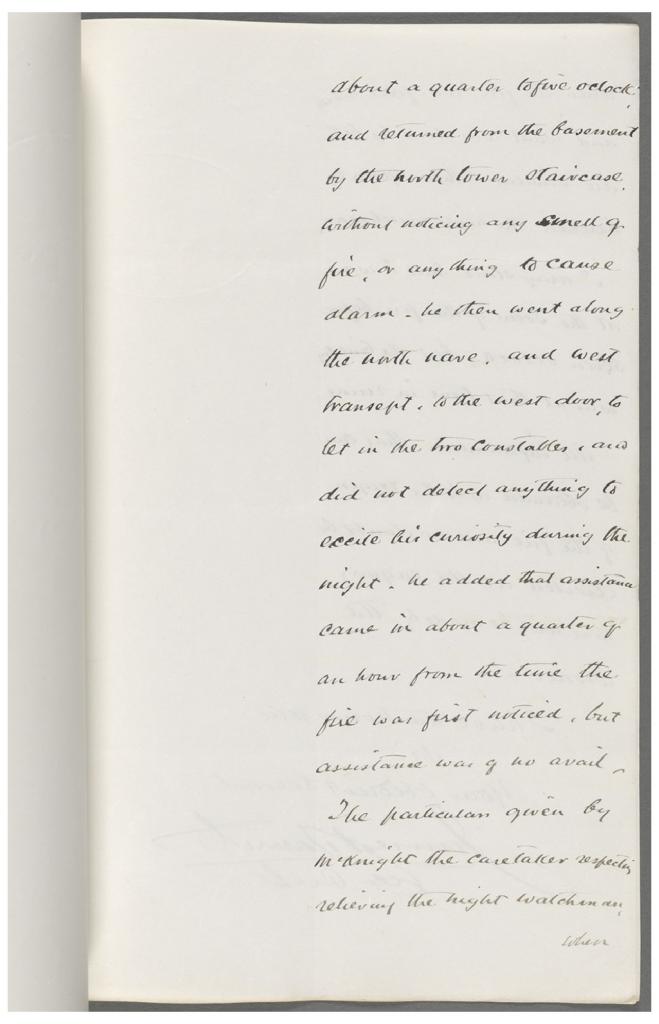 about a quarter to five oclock,
and returned from the basement
by the north tower staircase,
without noticing any smell of
fire, or anything to cause
alarm - he then went along
the north nave, and west
transept, to the west door, to
let in the two Constables, and
did not detect anything to
excite his curiosity during the
night - he added that assistance
came in about a quarter of
an hour from the time the
fire was first noticed, but
assistance was of no avail -
The particulars given by
McKnight the caretaker respecting
relieving the night watchman,
when